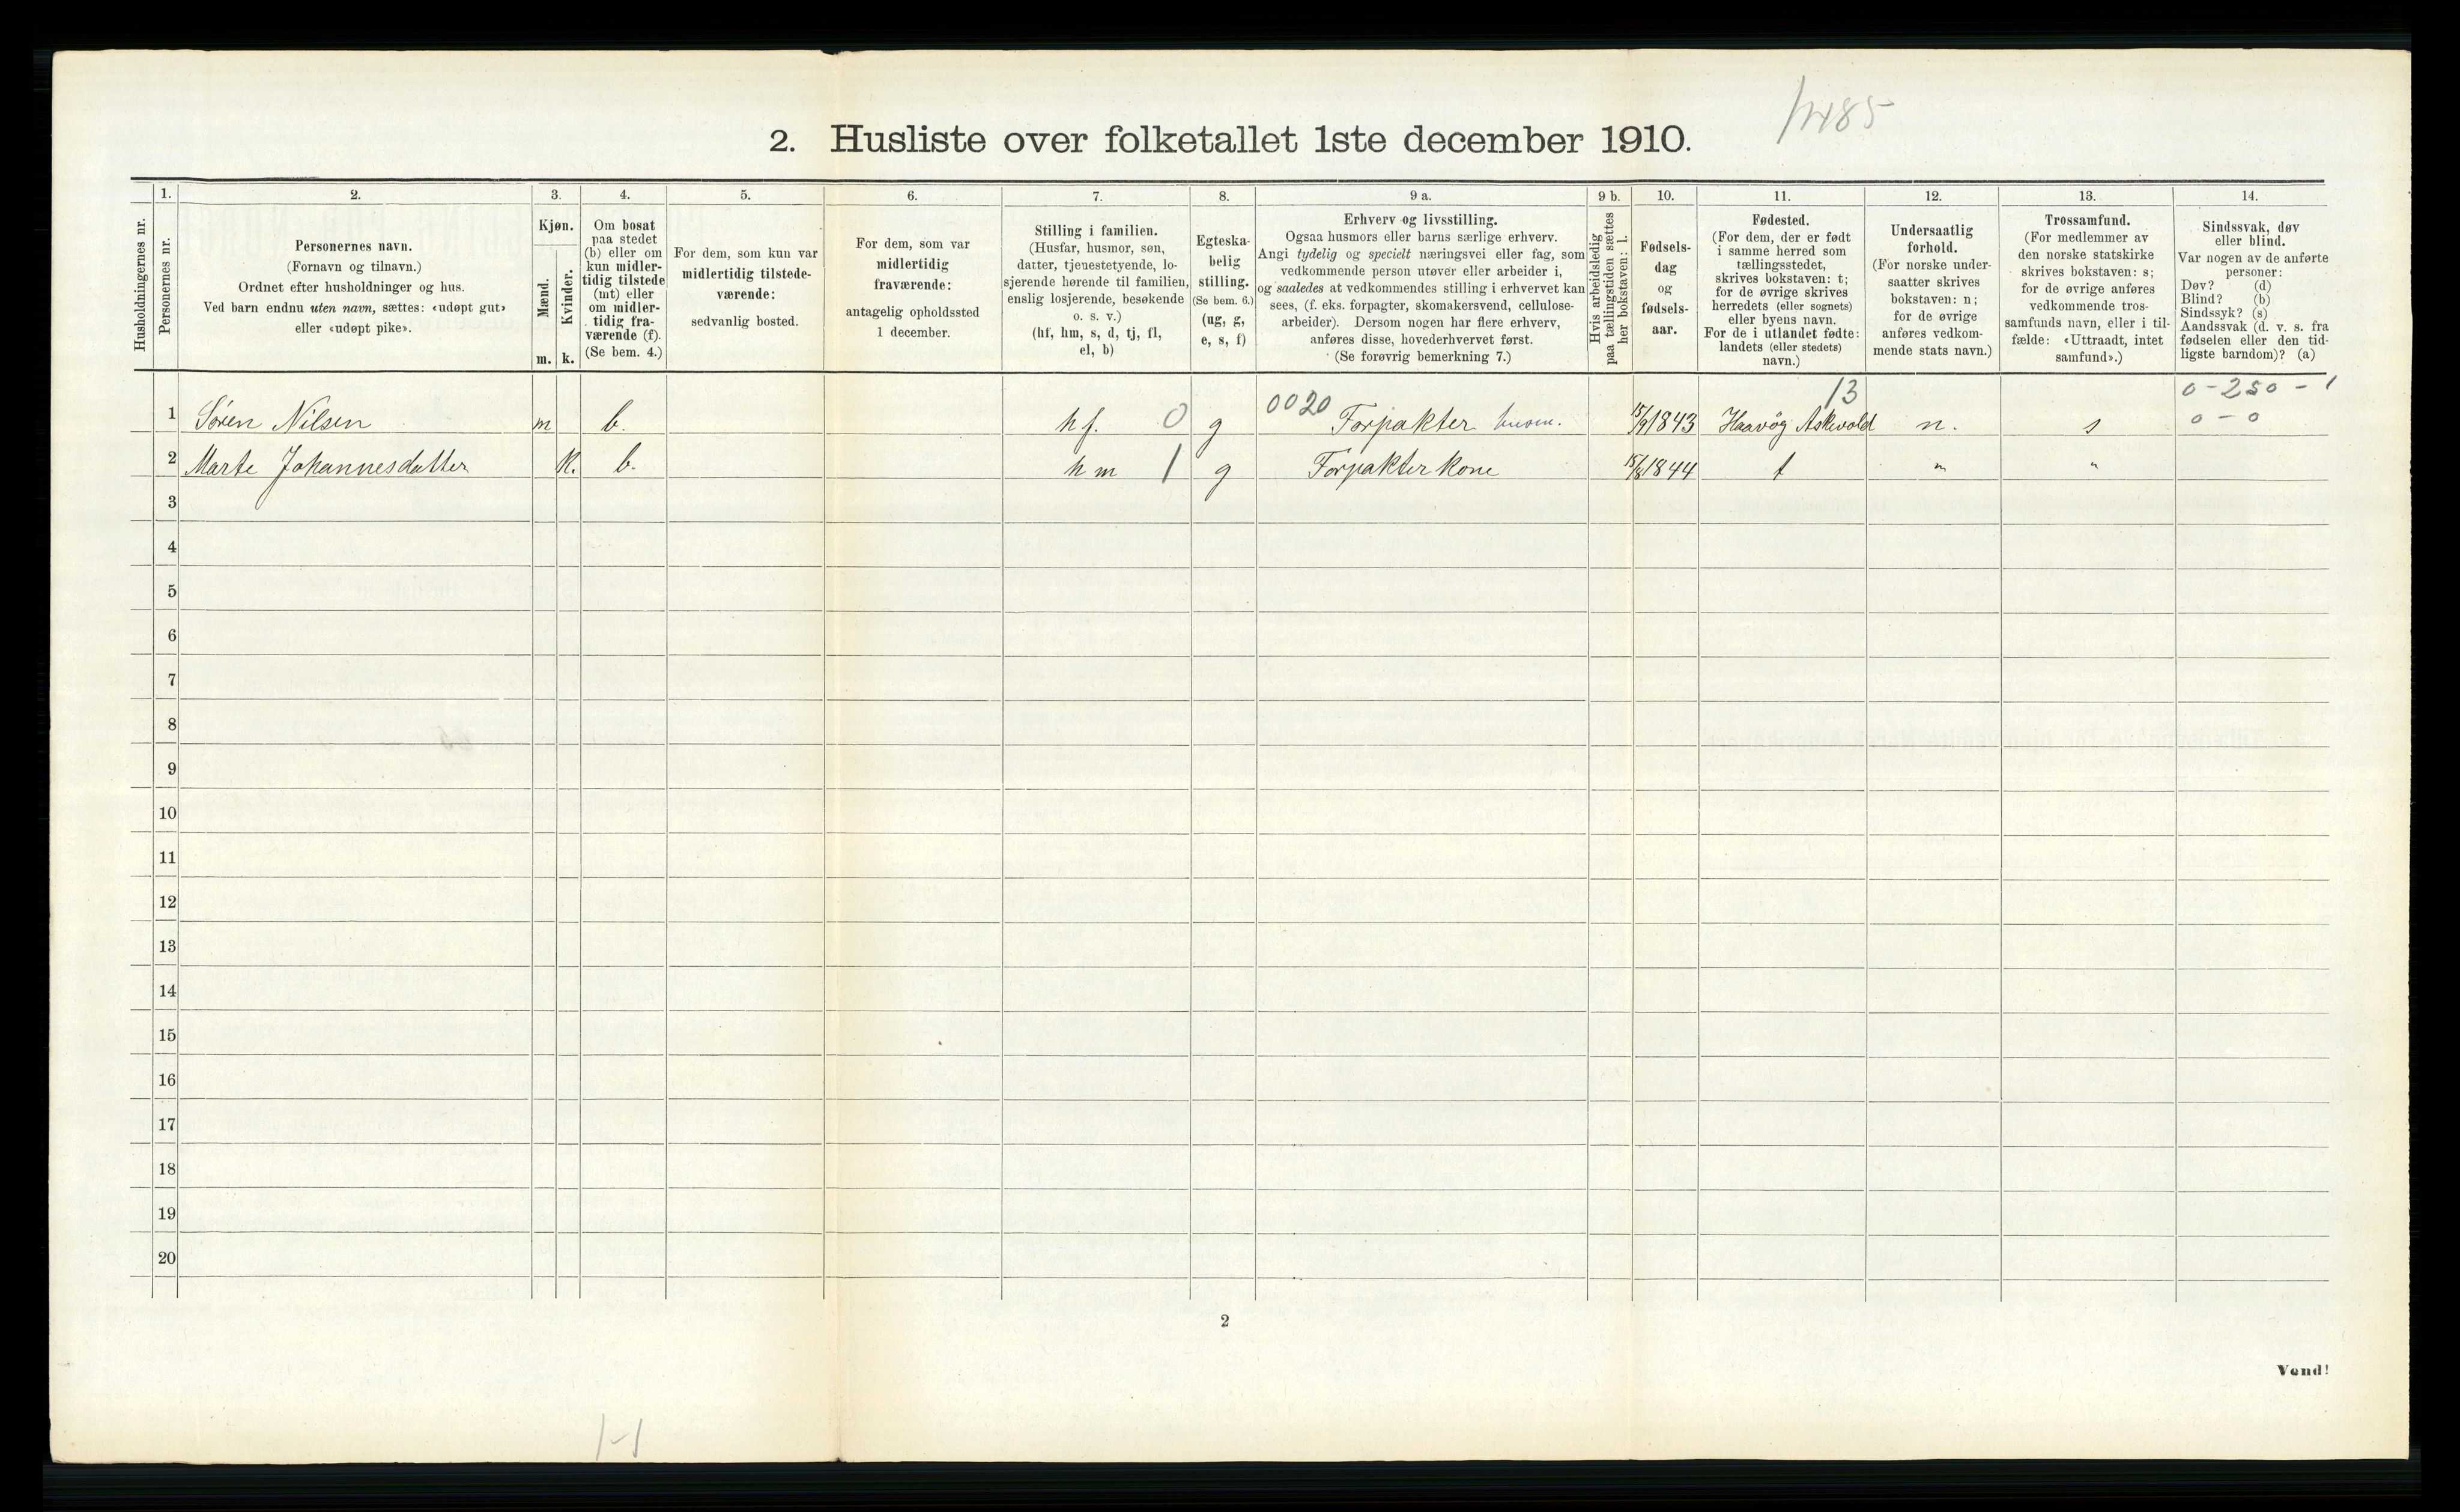 1485
2. Husliste over folketallet 1ste december 1910.
1. 2. 3. 4. 5. 6. 7. 8. 9 a. 9 b. 10. 11. 12. 13. 14.
Husholdningernes nr.
Personernes nr.
Personernes navn.
(Fornavn og tilnavn.)
Ordnet efter husholdninger og hus.
Ved barn endnu uten navn, sættes: «udøpt gut»
eller «udøpt pike».
Kjøn.
Mænd.
Kvinder.
m. k.
Om bosat
paa stedet
(b) eller om
kun midler-
tidig tilstede
(mt) eller
om midler-
tidig fra-
værende (f).
(Se bem. 4.)
For dem, som kun var
midlertidig tilstede-
værende:
sedvanlig bosted.
For dem, som var
midlertidig
fraværende:
antagelig opholdssted
1 december.
Stilling i familien.
(Husfar, husmor, søn,
datter, tjenestetyende, lo-
sjerende hørende til familien,
enslig losjerende, besøkende
o. s. v.)
(hf, hm, s, d, tj, fl,
el, b)
Egteska-
belig
stilling.
(Se bem. 6.)
(ug, g,
e, s, f)
Erhverv og livsstilling.
Ogsaa husmors eller barns særlige erhverv.
Angi tydelig og specielt næringsvei eller fag, som
vedkommende person utøver eller arbeider i,
og saaledes at vedkommendes stilling i erhvervet kan
sees, (f. eks. forpagter, skomakersvend, cellulose-
arbeider). Dersom nogen har flere erhverv,
anføres disse, hovederhvervet først.
(Se forøvrig bemerkning 7.)
Hvis arbeidsledig
paa tællingstiden sættes
her bokstaven: l.
Fødsels-
dag
og
fødsels-
aar.
Fødested.
(For dem, der er født
i samme herred som
tællingsstedet,
skrives bokstaven: t;
for de øvrige skrives
herredets (eller sognets)
eller byens navn.
For de i utlandet fødte:
landets (eller stedets)
navn.)
Undersaatlig
forhold.
(For norske under-
saatter skrives
bokstaven: n;
for de øvrige
anføres vedkom-
mende stats navn.)
Trossamfund.
(For medlemmer av
den norske statskirke
skrives bokstaven: s;
for de øvrige anføres
vedkommende tros-
samfunds navn, eller i til-
fælde: «Uttraadt, intet
samfund».)
Sindssvak, døv
eller blind.
Var nogen av de anførte
personer:
Døv? (d)
Blind? (b)
Sindssyk? (s)
Aandssvak (d. v. s. fra
fødselen eller den tid-
ligste barndom)? (a)
13 0-250-1
1 Søren Nilsen m b. hf. 0 g 0020 Forpakter 15/9 1843 Haavøg Askvold n. s 0-0
2 Marte Johannesdatter k. b. hm 1 g Forpakterkone 15/8 1844 t " "
3
4
5
6
7
8
9
10
11
12
13
14
15
16
17
18
19
20
2
Vend!
1-1